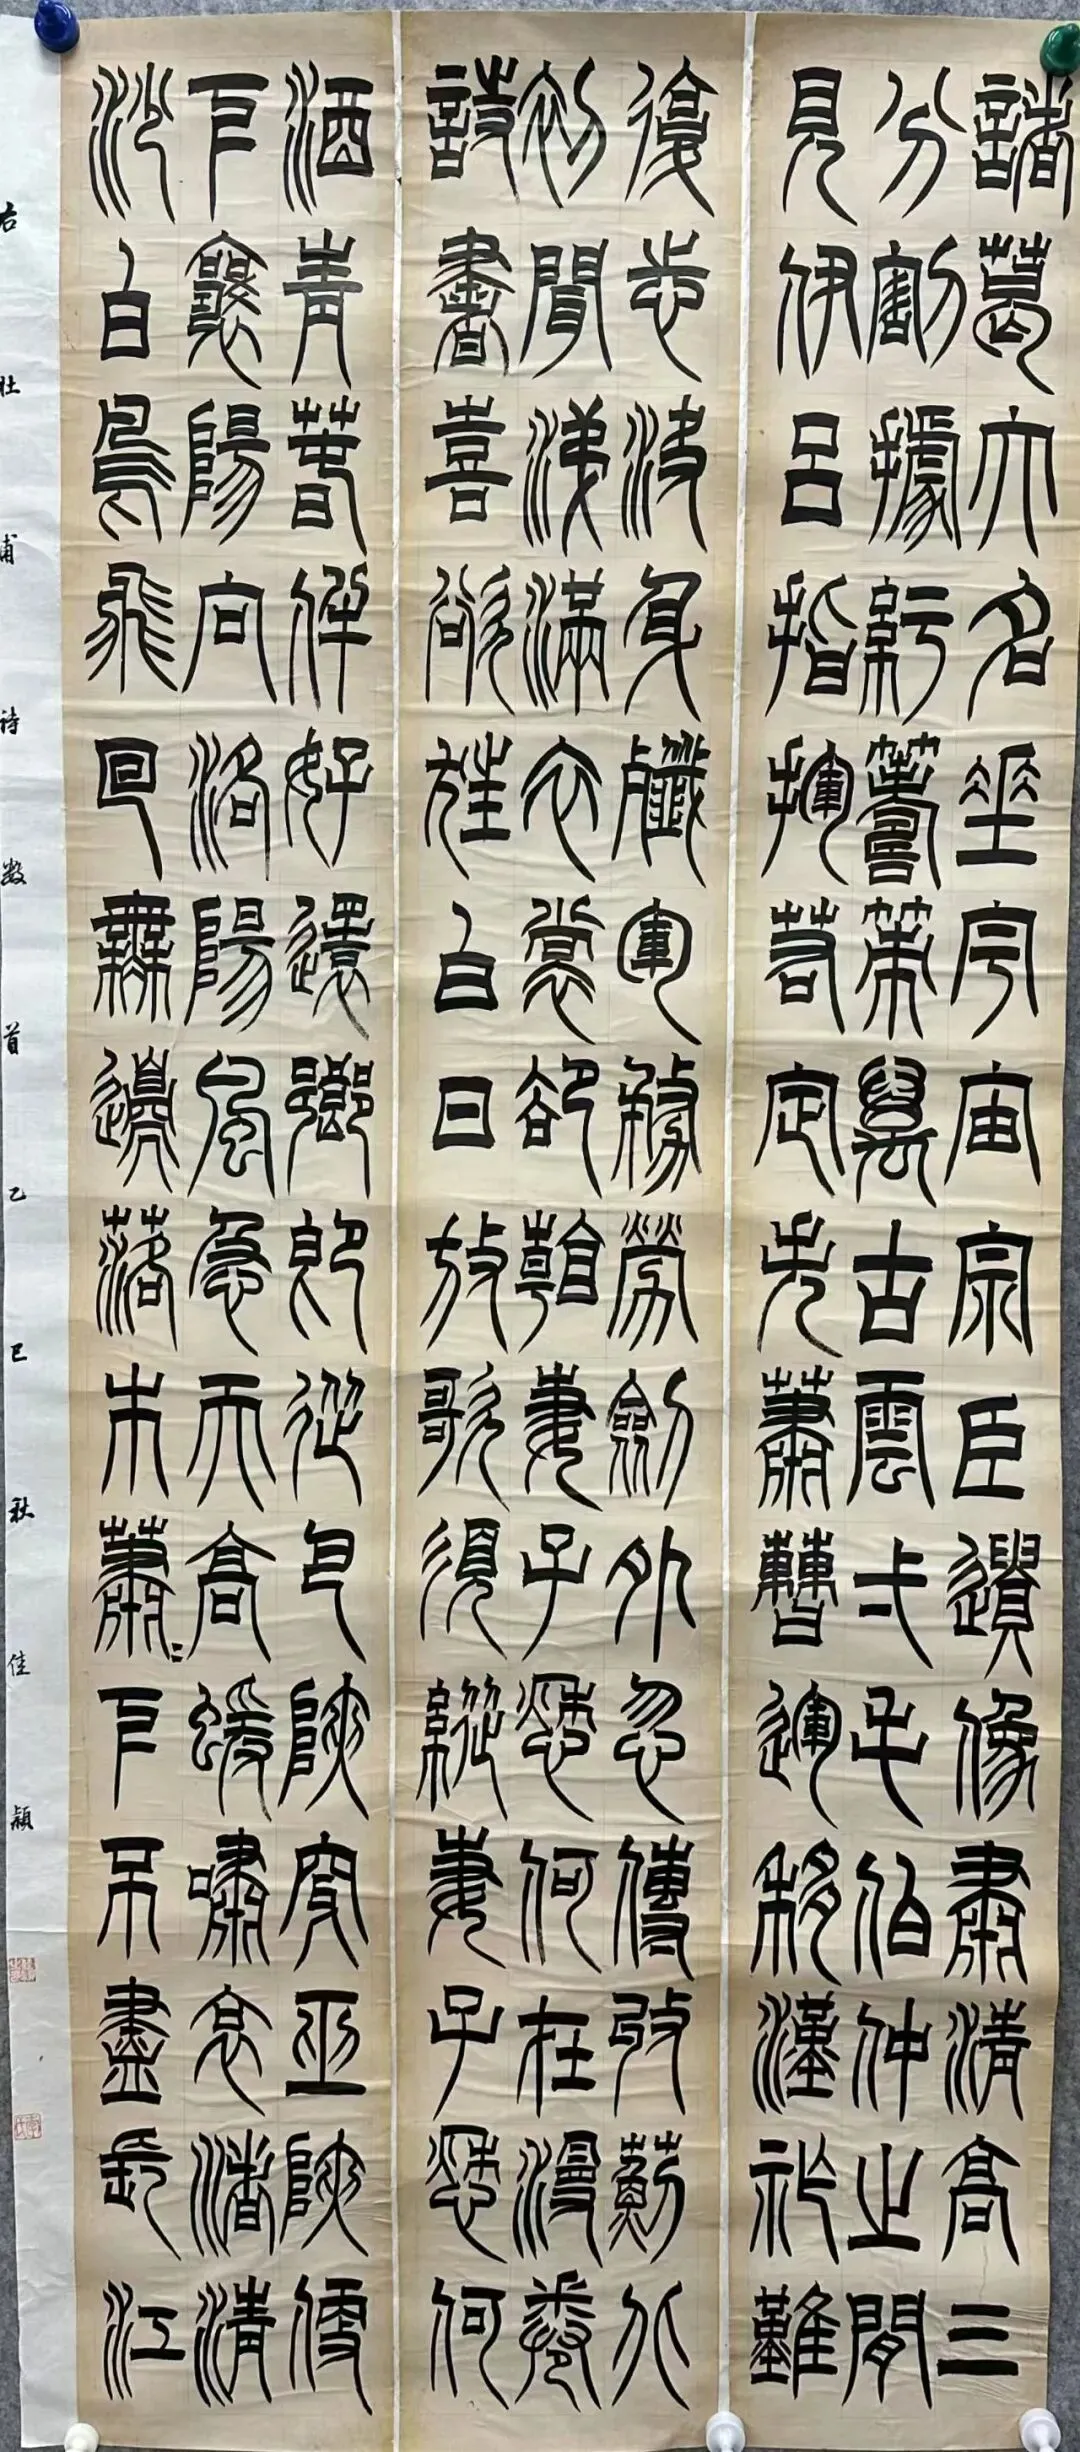 諸葛大名垂宇宙宗臣遺像肅清高三
分割據紆籌策萬古雲弌毛伯仲之間
見伊呂指揮若定失蕭曹運移漢祚難
復志決身殲軍務勞劍外忽傳收薊北
初聞涕滿衣裳卻看妻子愁何在漫卷
詩書喜欲狂白日放歌須縱妻子愁何
酒青春作好還鄉即從巴峽穿巫峽便
下襄陽向洛陽風急天高猿嘯哀渚清
沙白鳥飛回無邊落木蕭〻下不盡長江
右杜甫詩數首乙巳秋佳穎